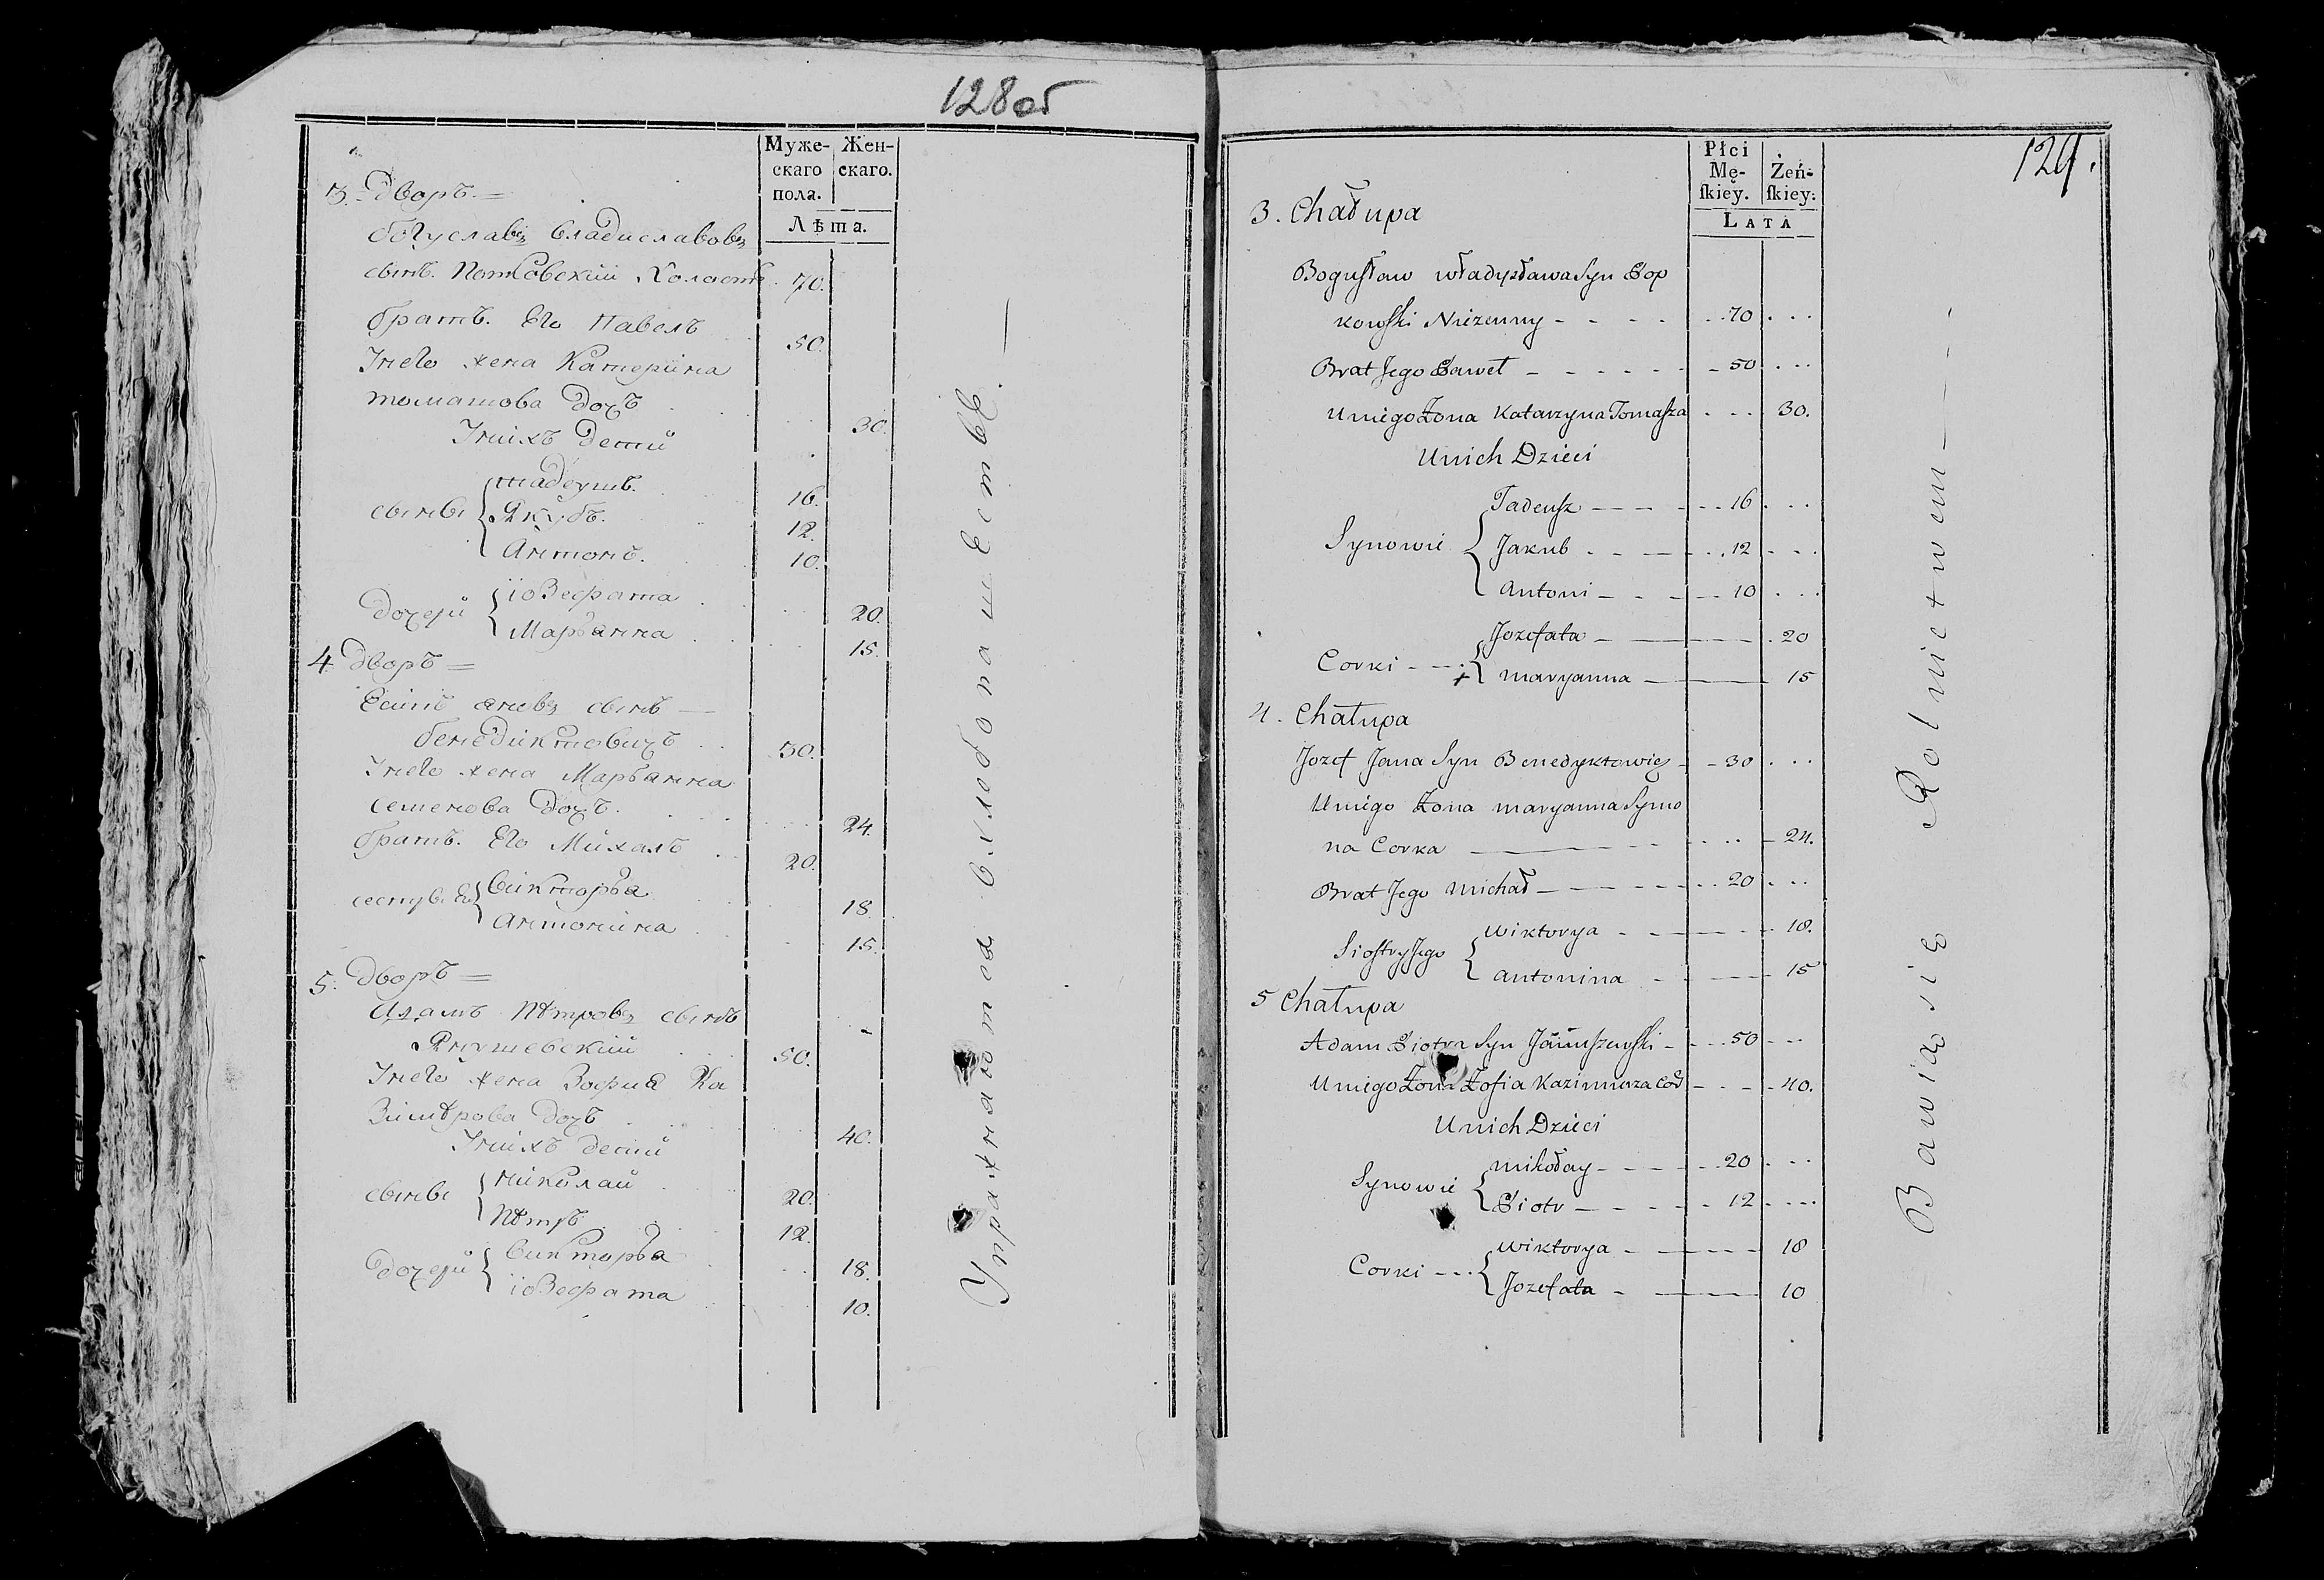 128 об
Муже-
скаго
пола.
Жен-
скаго.
Лѣта.
3. Дворъ =
богуславъ владиславовъ
сынъ. Потковскии холостъ. 70.
братъ. Его Павелъ 50.
Унего жена Катерина
томашова дочъ 30.
Унихъ детии
сынвы { тадеушъ. 16.
Якубъ. 12.
Антонъ. 10.
дочери { іозефата 20.
Марьянна 15.
4 дворъ =
Есипъ яновъ сынъ —
бенедиктовичъ 30.
Унего жена Марьянна
семенова дочъ. 24.
братъ. Его Михалъ 20.
сестры Его { викторья 18.
Антонина 15.
5. дворъ =
Адамъ Петровъ сынъ
Янушевский 50.
Унего жена Зофия Ка
зимерова дочъ 40.
Унихъ детии
сынвы { николай 20.
Петръ 12.
дочери { викторья 18.
іозефата 10.
Упражняются вхлебопашествѣ. —
129.
Płci
Mę-
ſkiey.
Żeń-
ſkiey:
LATA
3. Chałupa
Boguſław władysława Syn Pop
kowſki Nieżenny - - - - 70 . . .
Brat Jego Paweł - - - - - - 50 . . .
Uniego Żona Katarzyna Tomaſza . . . 30.
Unich Dzieci
Synowie { Tadeuſz - - - - 16 . . .
Jakub - - - 12 - - .
Antoni - - - - 10 . . .
Corki - - - { Jozefata - — 20
+ maryanna — 15
4. Chałupa
Jozef Jana Syn Benedyktowicz - - 30 . . .
Uniego Żona maryanna Symo
na Corka — - - . . . . - 24.
Brat Jego michał - - - - - 20 . . .
Sioſtry Jego { wiktorya - - — 18.
antonina - - — 15
5 Chałupa
Adam Piotra Syn Januſzewſki - - - 50 - - -
Uniego Żona Zofia Kazimierza Cor - - - - 40.
Unich Dzieci
Synowie { mikołay - - - - - 20 . . .
Piotr - - - - - 12 . . . .
Corki - - - { wiktorya - — 18
Jozefata - — 10
Bawią się Rolnictwem —